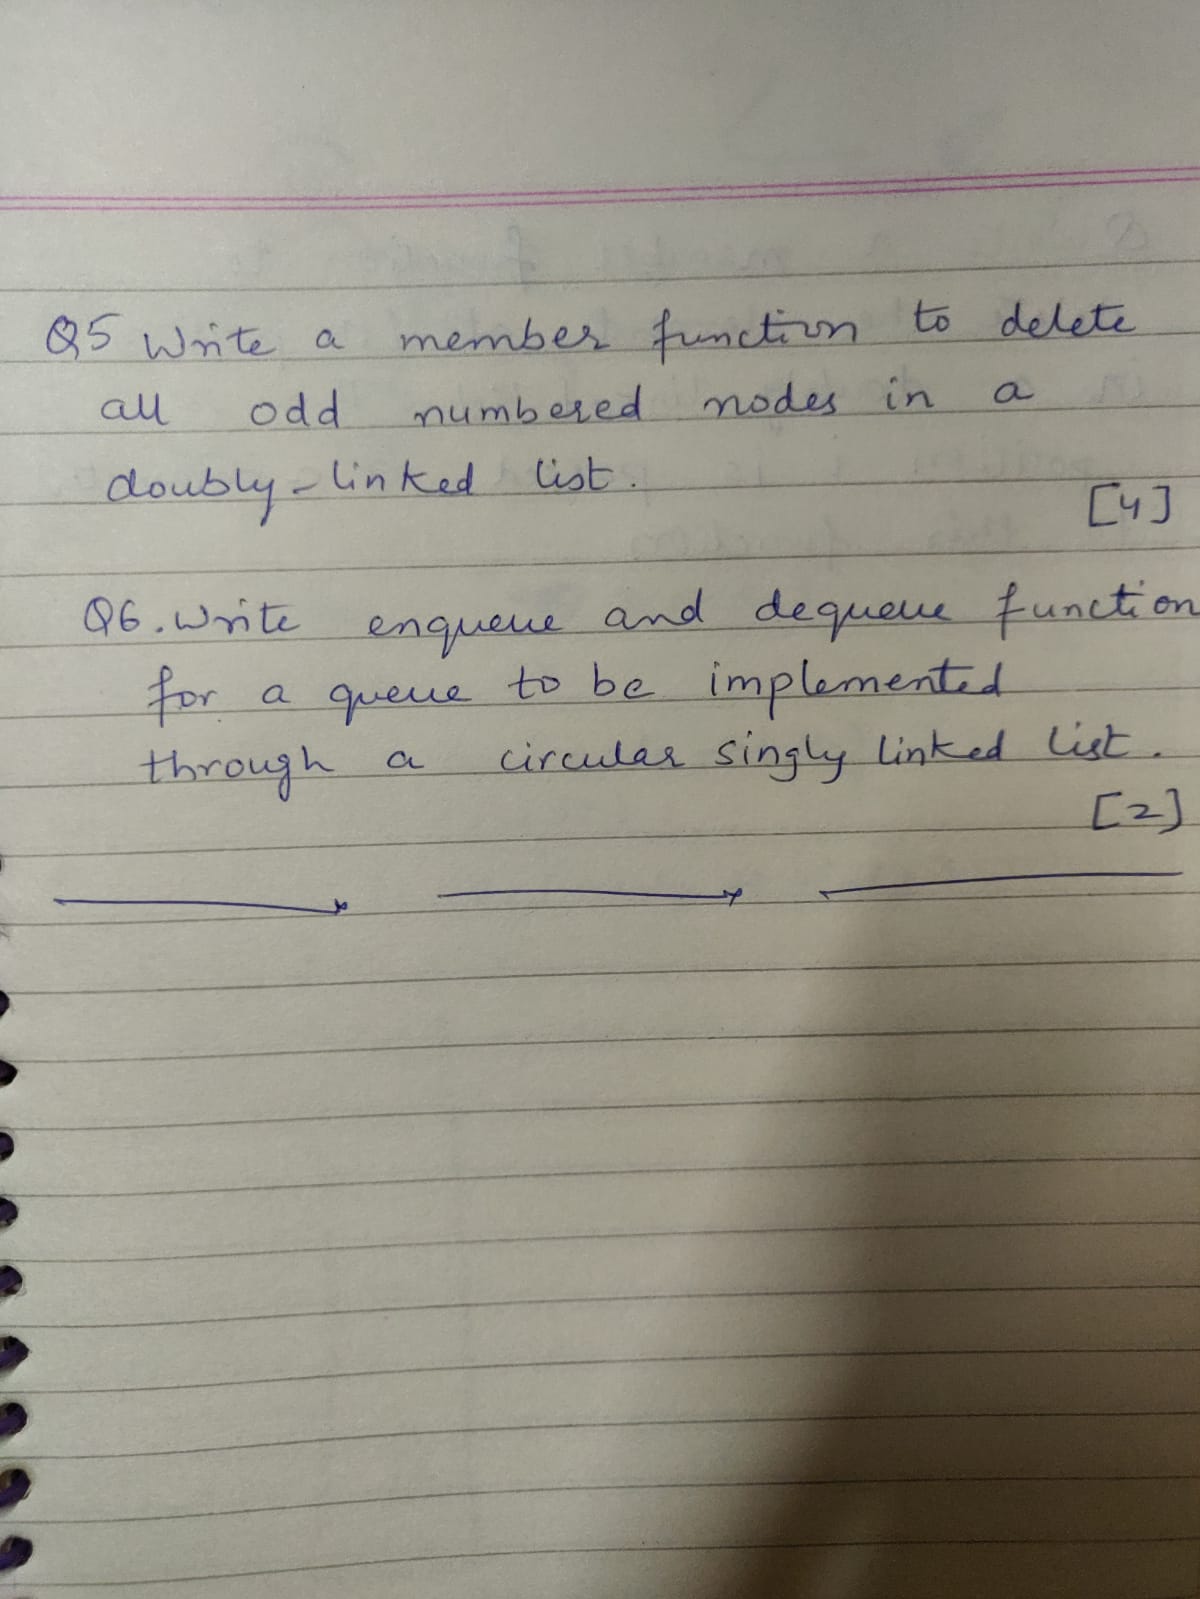 Q5 Write a member function to delete
all odd numbered nodes in a
doubly-linked list.
[4]
Q6. Write enqueue and dequeue function
for a queue to be implemented
through a circular singly linked list.
[2]